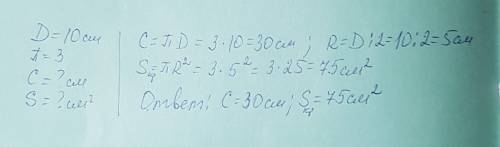 D = 10 см
П = 3
C = ? см
S = ? см²
C = ПD = 3 · 10 = 30 см ; R = D : 2 = 10 : 2 = 5 см
Sц = ПR² = 3 · 5² = 3 · 25 = 75 см²
Ответ: C = 30 см ; Sц = 75 см²